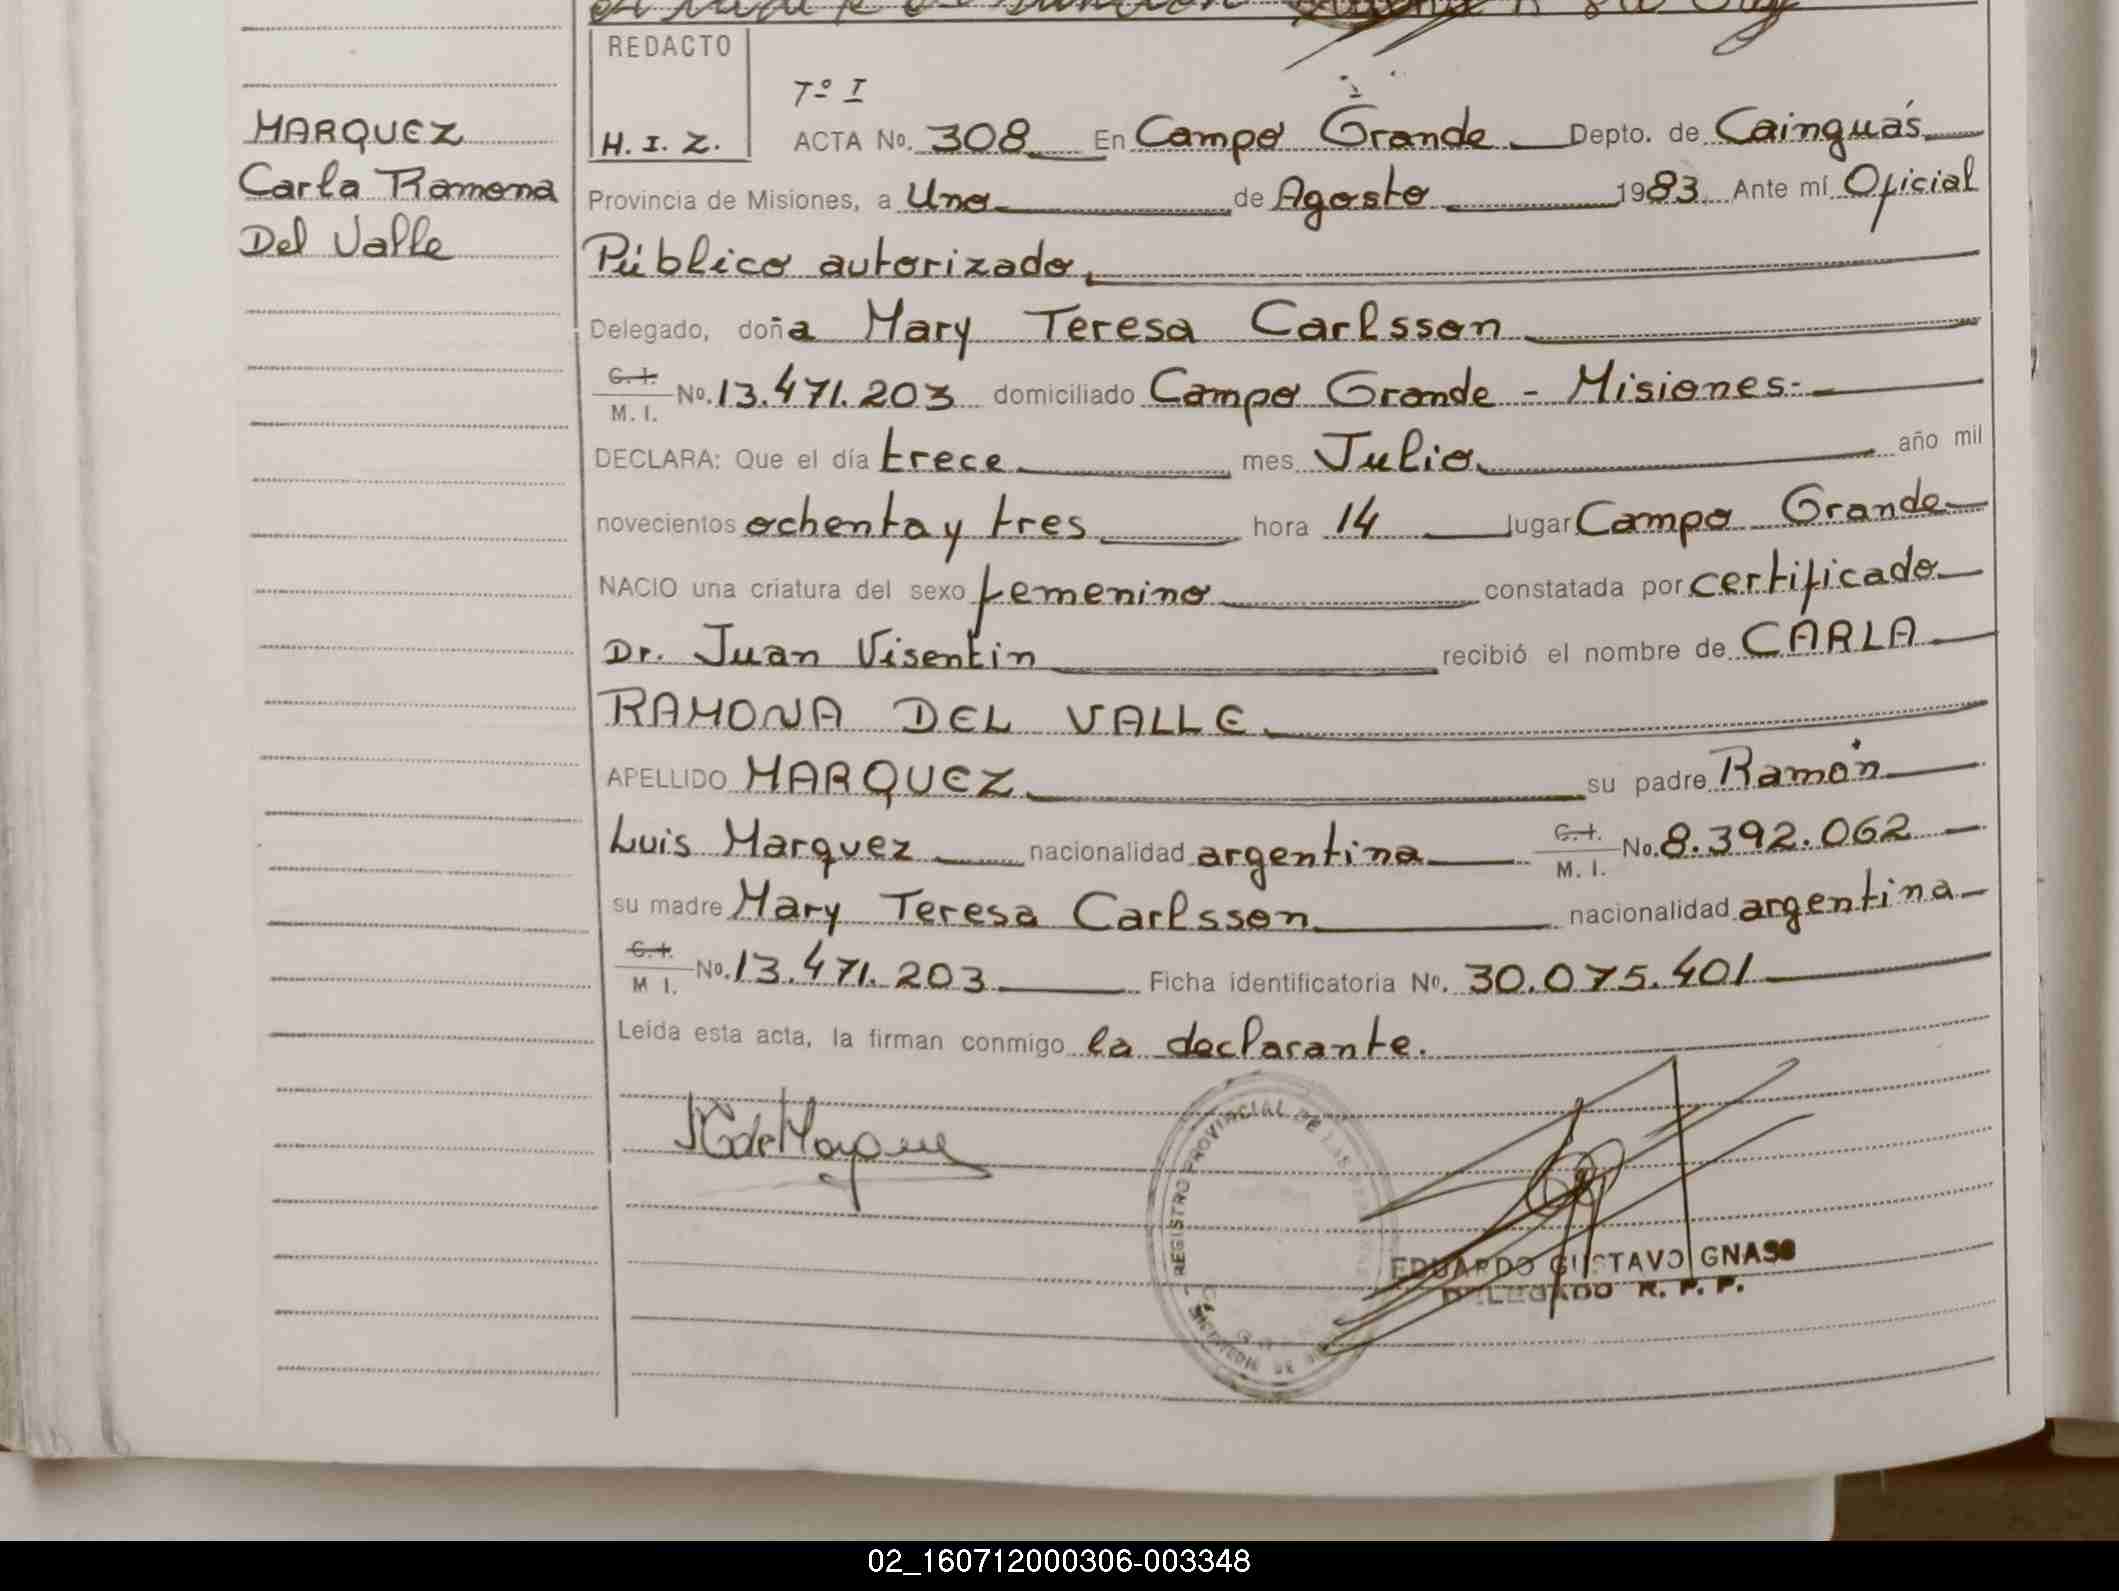 REDACTO
H. I. Z.
Tº I
MARQUEZ
Carla Ramona
Del Valle
ACTA No. 308 En Campo Grande Depto. de Cainguás
Provincia de Misiones, a Uno de Agosto 1983 Ante mí Oficial
Público autorizado,
Delegado, doña Mary Teresa Carlsson
C. I.
M. I. No. 13.471.203 domiciliado Campo Grande - Misiones.-
DECLARA: Que el día trece mes Julio año mil
novecientos ochenta y tres hora 14 lugar Campo Grande
NACIO una criatura del sexo femenino constatada por certificado
Dr. Juan Visentin recibió el nombre de CARLA
RAMONA DEL VALLE
APELLIDO MARQUEZ su padre Ramón
Luis Marquez nacionalidad argentina C. I. M. I. No. 8.392.062
su madre Mary Teresa Carlsson nacionalidad argentina
C. I.
M I. No. 13.471.203 Ficha identificatoria No. 30.075.401
Leída esta acta, la firman conmigo la declarante.
REGISTRO PROVINCIAL DE LAS
EDUARDO GUSTAVO GNASS
DELEGADO R. P. P.
02_160712000306-003348